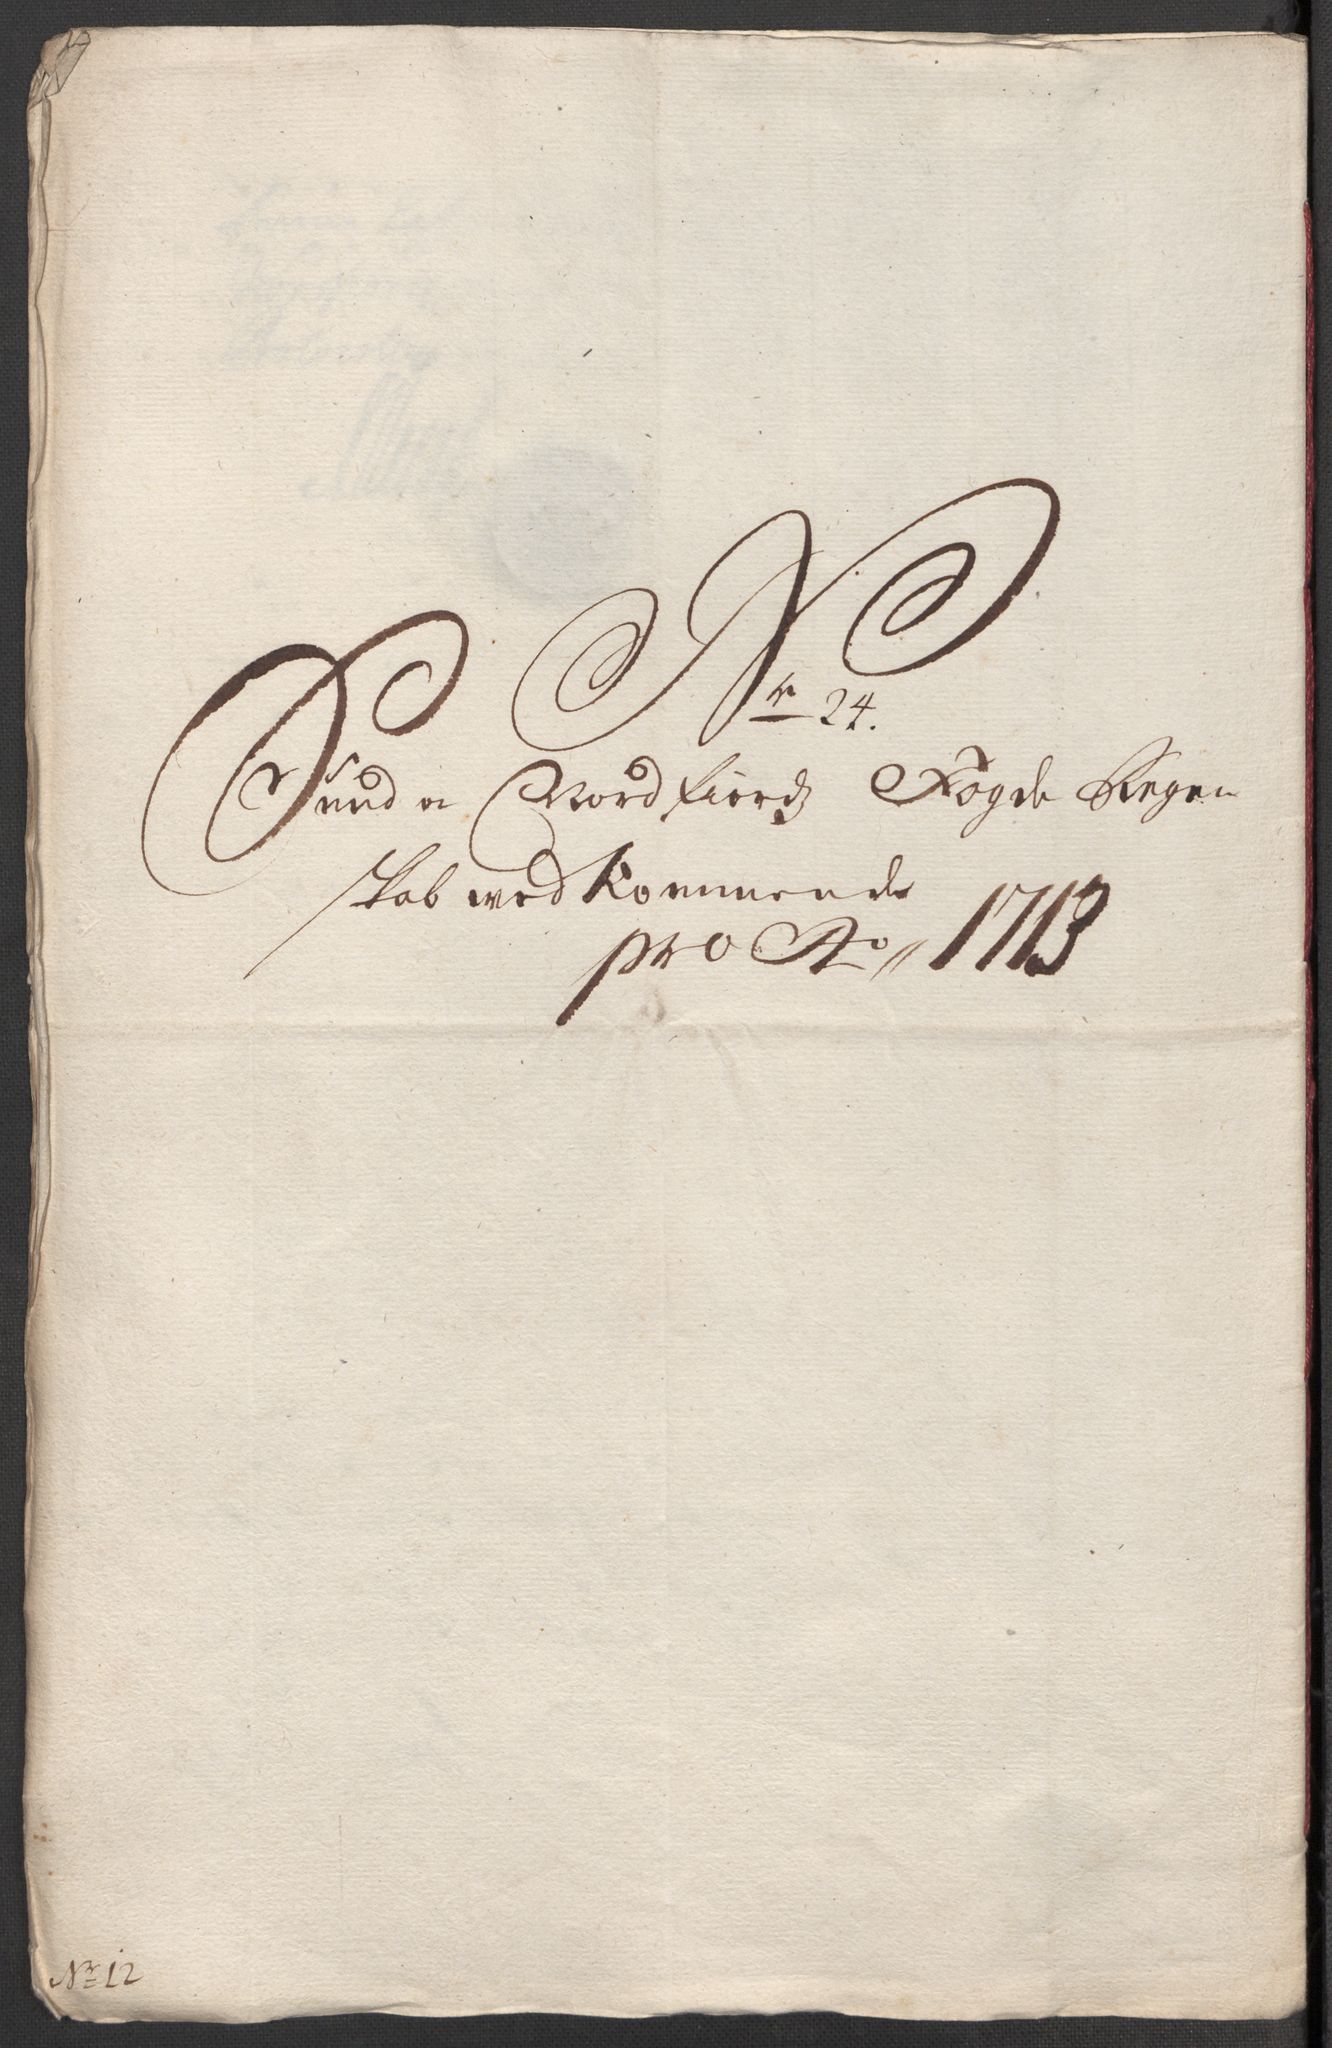 Nr 24.
Sund o Nordfiords Fogde Regen
skab wedkommende
pro Ao 1713
Nr 12